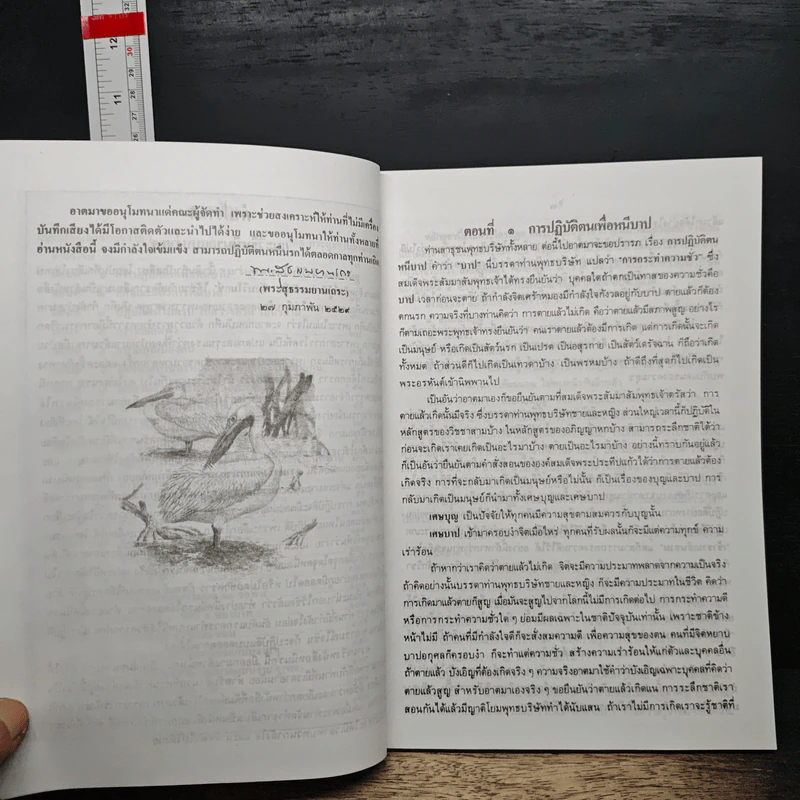 12
11
32
31
30
29
28
27
26
อาตมาขออนุโมทนาแด่คณะผู้จัดทำ เพราะช่วยสงเคราะห์ให้ท่านที่ไม่มีเครื่อง
บันทึกเสียงได้มีโอกาสติดตัวและนำไปได้ง่าย และขออนุโมทนาให้ท่านทั้งหลายที่
อ่านหนังสือนี้ จงมีกำลังใจเข้มแข็ง สามารถปฏิบัติตนหนีนรกได้ตลอดกาลทุกท่านเถิด
(พระสุธรรมยานเถระ)
๒๗ กุมภาพัน ๒๕๒๙
ตอนที่ ๑ การปฏิบัติตนเพื่อหนีบาป
ท่านสาธุชนพุทธบริษัททั้งหลาย ต่อนี้ไปอาตมาจะขอปรารภ เรื่อง การปฏิบัติตน
หนีบาป คำว่า "บาป" นี่บรรดาท่านพุทธบริษัท แปลว่า "การกระทำความชั่ว" ซึ่ง
สมเด็จพระสัมมาสัมพุทธเจ้าได้ทรงยืนยันว่า บุคคลใดถ้าตกเป็นทาสของความชั่วคือ
บาป เวลาก่อนจะตาย ถ้ากำลังจิตเศร้าหมองมีกำลังใจกังวลอยู่กับบาป ตายแล้วก็ต้อง
ตกนรก ความจริงที่บางท่านคิดว่า การตายแล้วไม่เกิด คือว่าตายแล้วมีสภาพสูญ อย่างไร
ก็ตามเถอะพระพุทธเจ้าทรงยืนยันว่า คนเราตายแล้วต้องมีการเกิด แต่การเกิดนั้นจะเกิด
เป็นมนุษย์ หรือเกิดเป็นสัตว์นรก เป็นเปรต เป็นอสุรกาย เป็นสัตว์เดรัจฉาน ก็ถือว่าเกิด
ทั้งหมด ถ้าส่วนดีก็ไปเกิดเป็นเทวดาบ้าง เป็นพรหมบ้าง ถ้าดีถึงที่สุดก็ไปเกิดเป็น
พระอรหันต์เข้านิพพานไป
เป็นอันว่าอาตมาเองก็ขอยืนยันตามที่สมเด็จพระสัมมาสัมพุทธเจ้าตรัสว่า การ
ตายแล้วเกิดนั้นมีจริง ซึ่งบรรดาท่านพุทธบริษัทชายและหญิง ส่วนใหญ่เวลานี้ก็ปฏิบัติใน
หลักสูตรของวิชชาสามบ้าง ในหลักสูตรของอภิญญาหกบ้าง สามารถระลึกชาติได้ว่า
ก่อนจะเกิดเราเคยเกิดเป็นอะไรมาบ้าง ตายเป็นอะไรมาบ้าง อย่างนี้ทราบกันอยู่แล้ว
ก็เป็นอันว่ายืนยันตามคำสั่งสอนขององค์สมเด็จพระประทีปแก้วได้ว่าการตายแล้วต้อง
เกิดจริง การที่จะกลับมาเกิดเป็นมนุษย์หรือไม่นั้น ก็เป็นเรื่องของบุญและบาป การ
กลับมาเกิดเป็นมนุษย์ก็นำมาทั้งเศษบุญและเศษบาป
เศษบุญ เป็นปัจจัยให้ทุกคนมีความสุขตามสมควรกับบุญนั้น
เศษบาป เข้ามาครอบงำจิตเมื่อไหร่ ทุกคนที่รับผลนั้นก็จะมีแต่ความทุกข์ ความ
เร่าร้อน
ถ้าหากว่าเราคิดว่าตายแล้วไม่เกิด จิตจะมีความประมาทพลาดจากความเป็นจริง
ถ้าคิดอย่างนั้นบรรดาท่านพุทธบริษัทชายและหญิง ก็จะมีความประมาทในชีวิต คิดว่า
การเกิดมาแล้วตายก็สูญ เมื่อมันจะสูญไปจากโลกนี้ไม่มีการเกิดต่อไป การกระทำความดี
หรือการกระทำความชั่วใด ๆ ย่อมมีผลเฉพาะในชาติปัจจุบันเท่านั้น เพราะชาติข้าง
หน้าไม่มี ถ้าคนที่มีกำลังใจดีก็จะสั่งสมความดี เพื่อความสุขของตน คนที่มีจิตหยาบ
บาปอกุศลก็ครอบงำ ก็จะทำแต่ความชั่ว สร้างความเร่าร้อนให้แก่ตัวและบุคคลอื่น
ถ้าตายแล้ว บังเอิญที่ต้องเกิดจริง ๆ ความจริงอาตมาใช้คำว่าบังเอิญเฉพาะบุคคลที่คิดว่า
ตายแล้วสูญ สำหรับอาตมาเองจริง ๆ ขอยืนยันว่าตายแล้วเกิดแน่ การระลึกชาติเรา
สอนกันได้แล้วมีญาติโยมพุทธบริษัททำได้นับแสน ถ้าเราไม่มีการเกิดเราจะรู้ชาติที่